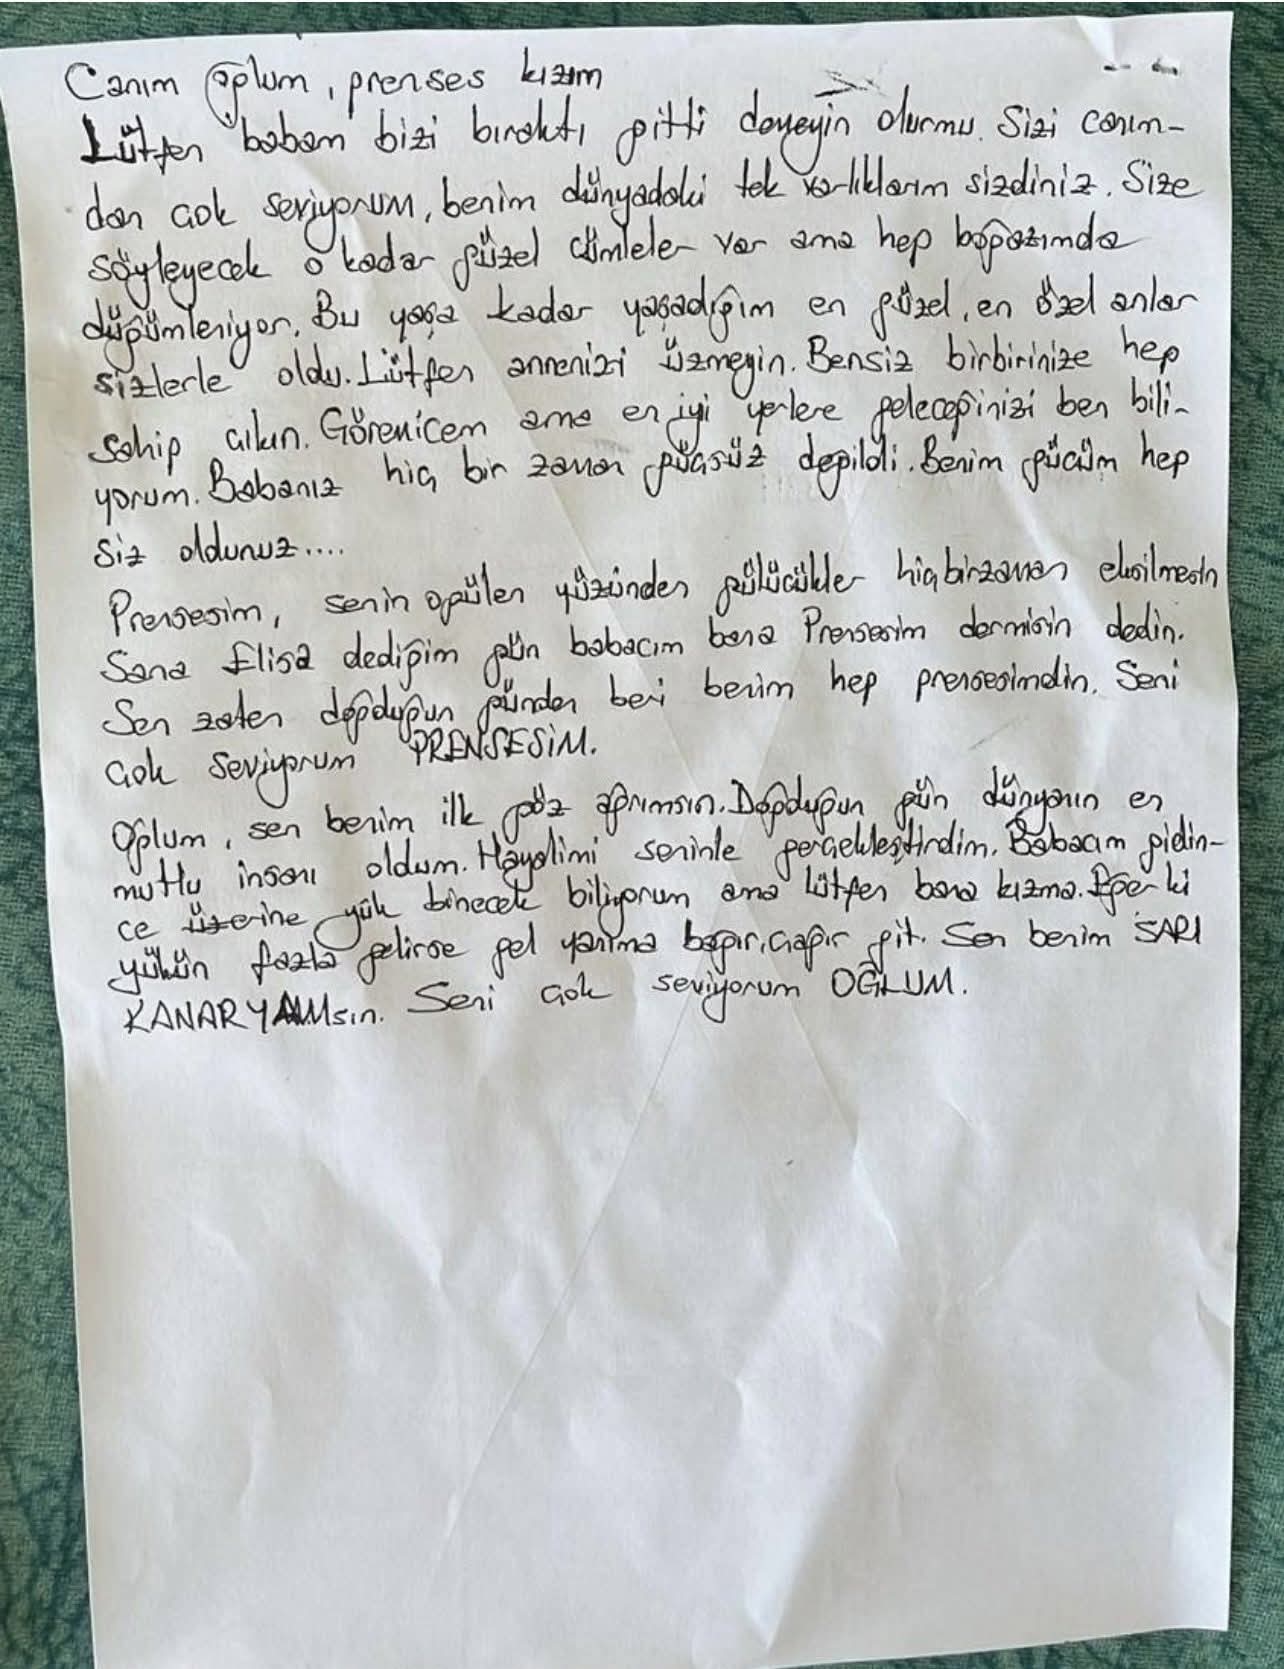 Canım oğlum, prenses kızım
Lütfen babam bizi bıraktı gitti demeyin olurmu. Sizi canım-
dan çok seviyorum, benim dünyadaki tek varlıklarım sizdiniz. Size
söyleyecek o kadar güzel cümleler var ama hep boğazımda
düğümleniyor. Bu yaşa kadar yaşadığım en güzel, en özel anlar
sizlerle oldu. Lütfen annenizi üzmeyin. Bensiz birbirinize hep
sahip çıkın. Göremicem ama en iyi yerlere geleceğinizi ben bili-
yorum. Babanız hiç bir zaman güçsüz değildi. Benim gücüm hep
siz oldunuz....
Prensesim, senin gülen yüzünden gülücükler hiçbirzaman eksilmesin
Sana Elisa dediğim gün babacım bana Prensesim dermisin dedin.
Sen zaten doğduğun günden beri benim hep prensesimdin. Seni
çok seviyorum PRENSESİM.
Oğlum, sen benim ilk göz ağrımsın. Doğduğun gün dünyanın en
mutlu insanı oldum. Hayalimi seninle gerçekleştirdim. Babacım gidin-
ce üzerine yük binecek biliyorum ama lütfen bana kızma. Eğer ki
yükün fazla gelirse gel yanıma bağır, çağır git. Sen benim SARI
KANARYAMsın. Seni çok seviyorum OĞLUM.